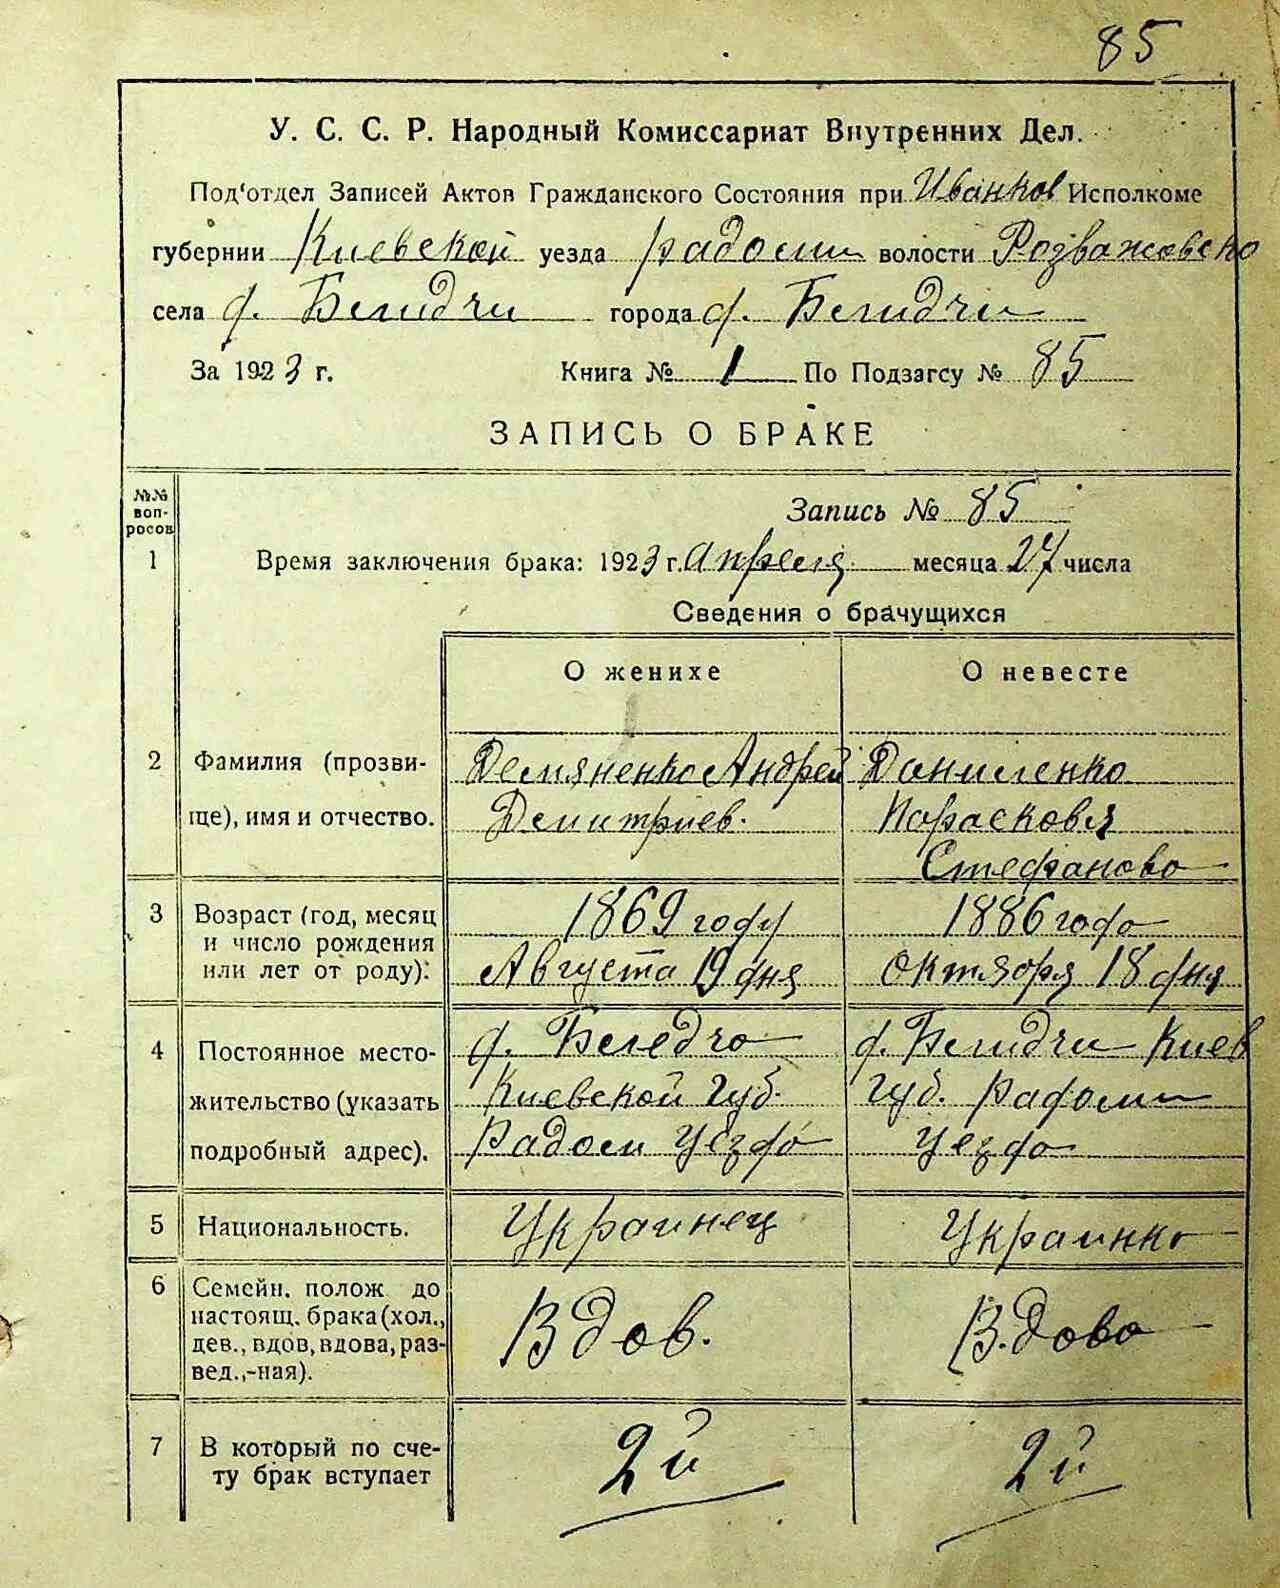 85
У. С. С. Р. Народный Комиссариат Внутренних Дел.
Под'отдел Записей Актов Гражданского Состояния при Иванков Исполкоме
губернии Киевской уезда Радомы волости Розважовско
села д. Бегидчи города д. Бегидчи
За 1923 г. Книга № 1 По Подзагсу № 85
ЗАПИСЬ О БРАКЕ
№№ вопросов
Запись № 85
1 Время заключения брака: 1923 г. Апреля месяца 27 числа
Сведения о брачущихся
О женихе О невесте
2 Фамилия (прозви- Демяненко Андрей Даниленко
ще), имя и отчество. Дмитриев. Парасковя
Стефаново
3 Возраст (год, месяц 1869 году 1886 года
и число рождения
или лет от роду): Августа 19 дня Октября 18 дня
4 Постоянное место- д. Бегедча д. Бегидчи Киев
жительство (указать Киевской Губ. Губ. Радомы
подробный адрес). Радом Уезда Уезда
5 Национальность. Украинец Украинка
6 Семейн. полож до
настоящ. брака (хол., Вдов. Вдова
дев., вдов, вдова, раз-
вед.,-ная).
7 В который по сче- 2й 2й
ту брак вступает